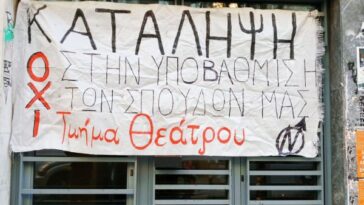 ΚΑΤΑΛΗΨΗ
ΟΧΙ
ΣΤΗΝ ΥΠΟΒΑΘΜΙΣΗ
ΤΩΝ ΣΠΟΥΔΩΝ ΜΑΣ
Τμήμα Θεάτρου